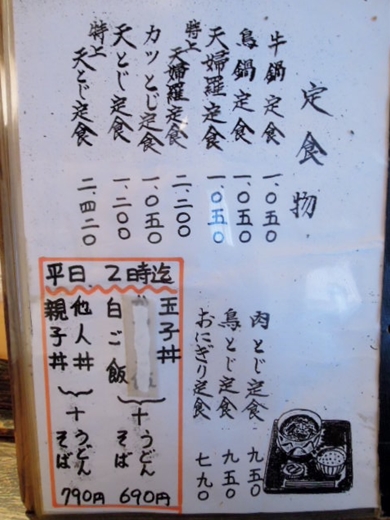 定食物
牛鍋定食 一、〇五〇
鳥鍋定食 一、〇五〇
天婦羅定食 一、〇五〇
特上天婦羅定食 二、二〇〇
カツとじ定食 一、〇五〇
天とじ定食 一、二〇〇
特上天とじ定食 二、四二〇
肉とじ定食 九五〇
鳥とじ定食 九五〇
おにぎり定食 七九〇
平日 2時迄
玉子丼
白ご飯
十 うどん そば
690円
他人丼
親子丼
十 うどん そば
790円